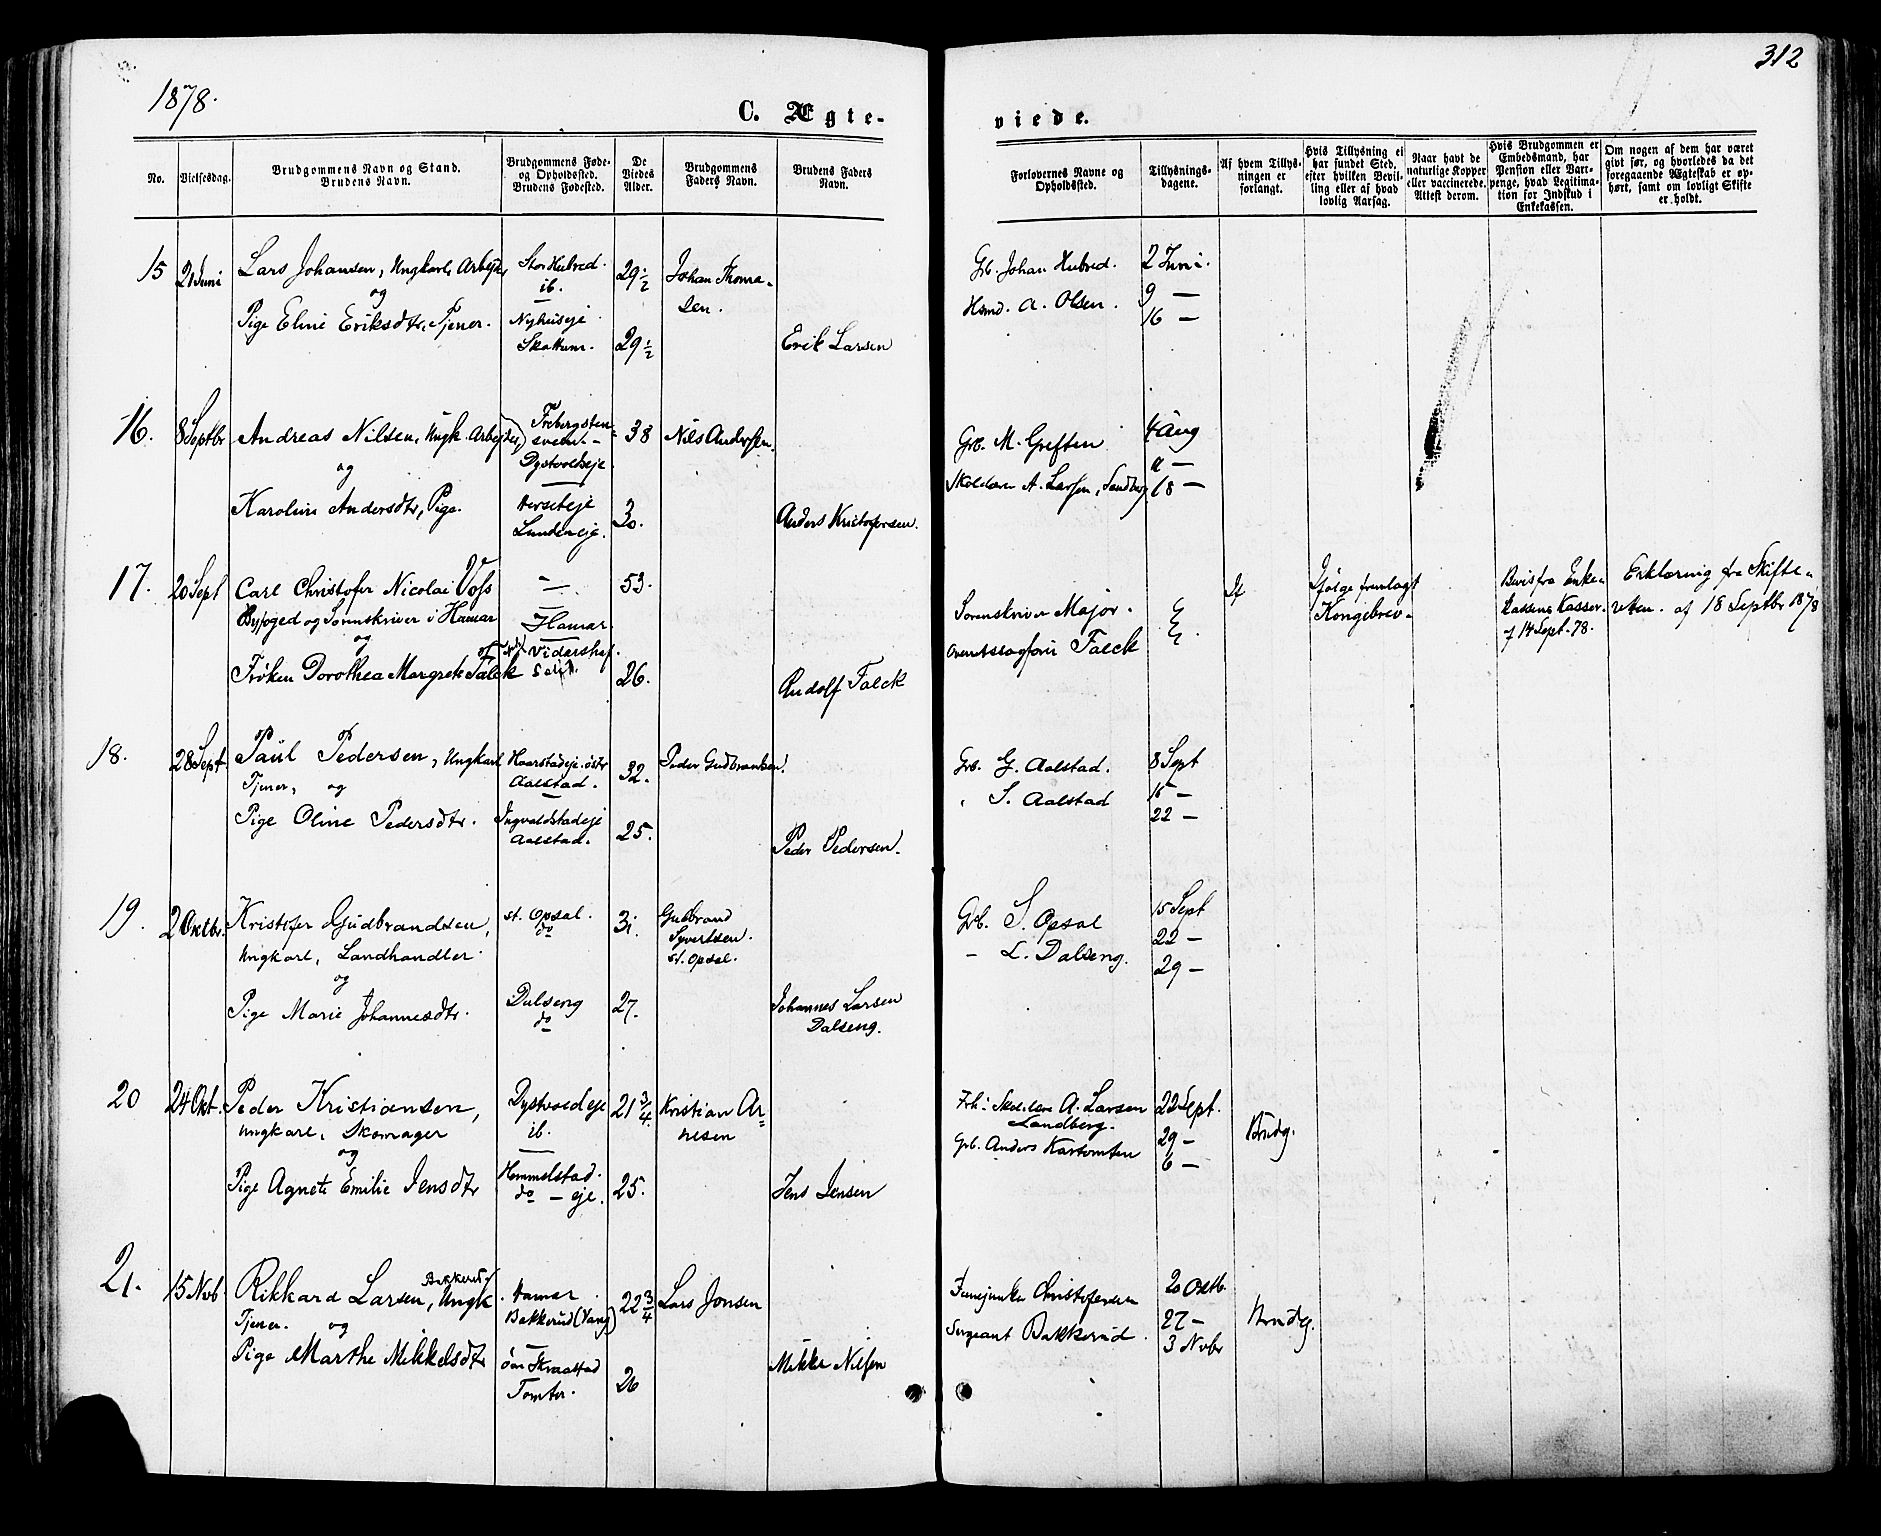 1878.
312
C. Ægte-
viede.
No.
Vielsesdag.
Brudgommens Navn og Stand.
Brudens Navn.
Brudgommens Føde-
og Opholdssted.
Brudens Fødested.
De
Viedes
Alder.
Brudgommens
Faders Navn.
Brudens Faders
Navn.
Forlovernes Navne og
Opholdssted.
Tillysnings-
dagene.
Af hvem Tillys-
ningen er
forlangt.
Hvis Tillysning ei
har fundet Sted,
efter hvilken Bevil-
ling eller af hvad
lovlig Aarsag.
Naar havt de
naturlige Kopper
eller vaccinerede.
Attest derom.
Hvis Brudgommen er
Embedsmand, har
Pension eller Vart-
penge, hvad Legitima-
tion for Indskud i
Enkekassen.
Om nogen af dem har været
givt før, og hvorledes da det
foregaaende Ægteskab er op-
hørt, samt om lovligt Skifte
er holdt.
15
21 Juni
Lars Johansen, Ungkarl, Arbejder
og
Pige Eline Eriksdtr, Tjener.
Stor Hubred.
ib.
Nyhuseje
Skattum.
29 1/2
29 1/2
Johan Thoma-
sen.
Erik Larsen
Grb. Johan Hubred.
Hsmd. A. Olsen.
2 Juni.
9 —
16 —
16.
8 Septbr
Andreas Nilsen, Ungk. Arbejder,
og
Karoline Andersdtr, Pige.
Dystvoldseje
Lundeneje.
38
30.
Nils Andersen.
Anders Kristofersen.
Grb. M. Greften
A. Larsen, Sandberg
4 Aug
18 —
17.
20 Sept
Carl Christofer Nicolai Voss
Byfoged og Sorenskriver i Hamar
og
Frøken Dorothea Margrete Falck
—
Hamar.
Vidarshof.
53.
26.
Rudolf Falck
Sorenskriver Major.
Falck
If
Ifølge fremlagt
Kongebrev.
Bevis fra Enke-
kassens Kasser.
af 14 Sept. 78.
Erklæring fra Skifte-
retten af 18 Septbr 1878
18.
28 Sept.
Paul Pedersen, Ungkarl
Tjener, og
Pige Oline Pedersdtr.
Haarstadeje. østr
Aalstad.
Ingvaldstadeje
Aalstad.
32.
25.
Peder Gudbrandsen.
Peder Pedersen.
Grb. G. Aalstad.
" S. Aalstad
8 Sept
15 —
22 —
19.
2 Oktbr.
Kristofer Gudbrandsen,
Ungkarl, Landhandler
og
Pige Marie Johannesdtr.
st. Opsal.
do
Dalseng
do
31.
27.
Gudbrand
Syvertsen.
st. Opsal.
Johannes Larsen
Dalseng.
Grb. S. Opsal
— L. Dalseng.
15 Sept
22 —
29 —
20
24 Okt.
Peder Kristiansen,
Ungkarl, Skomager
og
Pige Agnete Emilie Jensdtr
Dystvoldeje
ib.
Hemmelstad.
do — eje.
21 3/4
25.
Kristian Ar-
nesen
Jens Jensen
A. Larsen
Sandberg.
Grb. Anders Kartomten
22 Sept.
29 —
6 —
Brudg.
21.
15 Nvb.
Rikkard Larsen, Bakkerud, Ungk
Tjener. og
Pige Marthe Mikkelsdtr
Hamar.
Bakkerud (Vang)
Skraastad
Tomter.
22 3/4
26
Lars Jonsen
Mikke Nilsen
Christofersen
Sergeant Bakkerud.
20 Oktb.
27 —
3 Nvbr
Brudg.